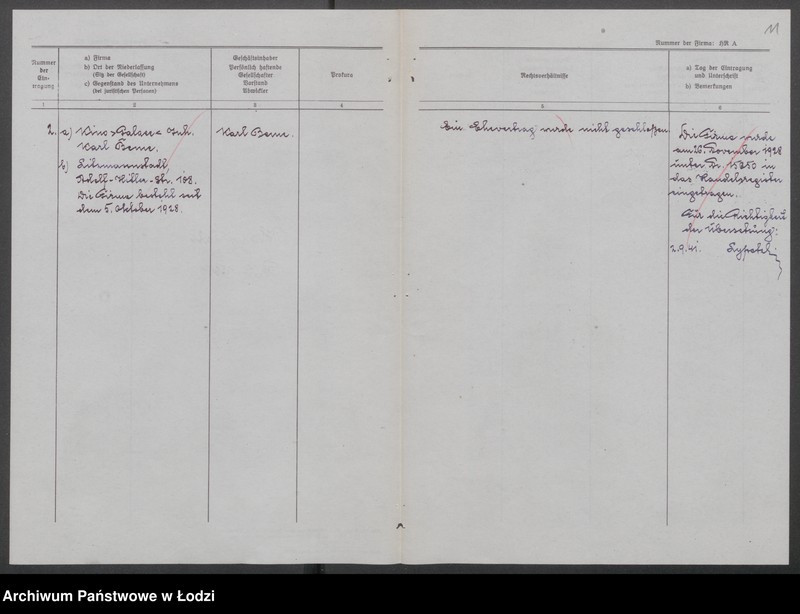 11
Nummer der Firma: HR A
Nummer der Ein- tragung
a) Firma
b) Ort der Niederlassung
(Sitz der Gesellschaft)
c) Gegenstand des Unternehmens
(bei juristischen Personen)
Geschäftsinhaber
Persönlich haftende
Gesellschafter
Vorstand
Abwickler
Prokura
Rechtsverhältnisse
a) Tag der Eintragung
und Unterschrift
b) Bemerkungen
1 2 3 4 5 6
2. a) Kino Inh.
Karl Benne.
b) Litzmannstadt
Adolf-Hitler-Str. 108.
Die Firma besteht seit
dem 5. Oktober 1928.
Karl Benne.
Ein Ehevertrag wurde nicht geschlossen.
Die Firma wurde
am 26. November 1928
unter Nr. in
das Handelsregister
eingetragen.
Für die Richtigkeit
der Übersetzung:
2.9.41.
Archiwum Państwowe w Łodzi